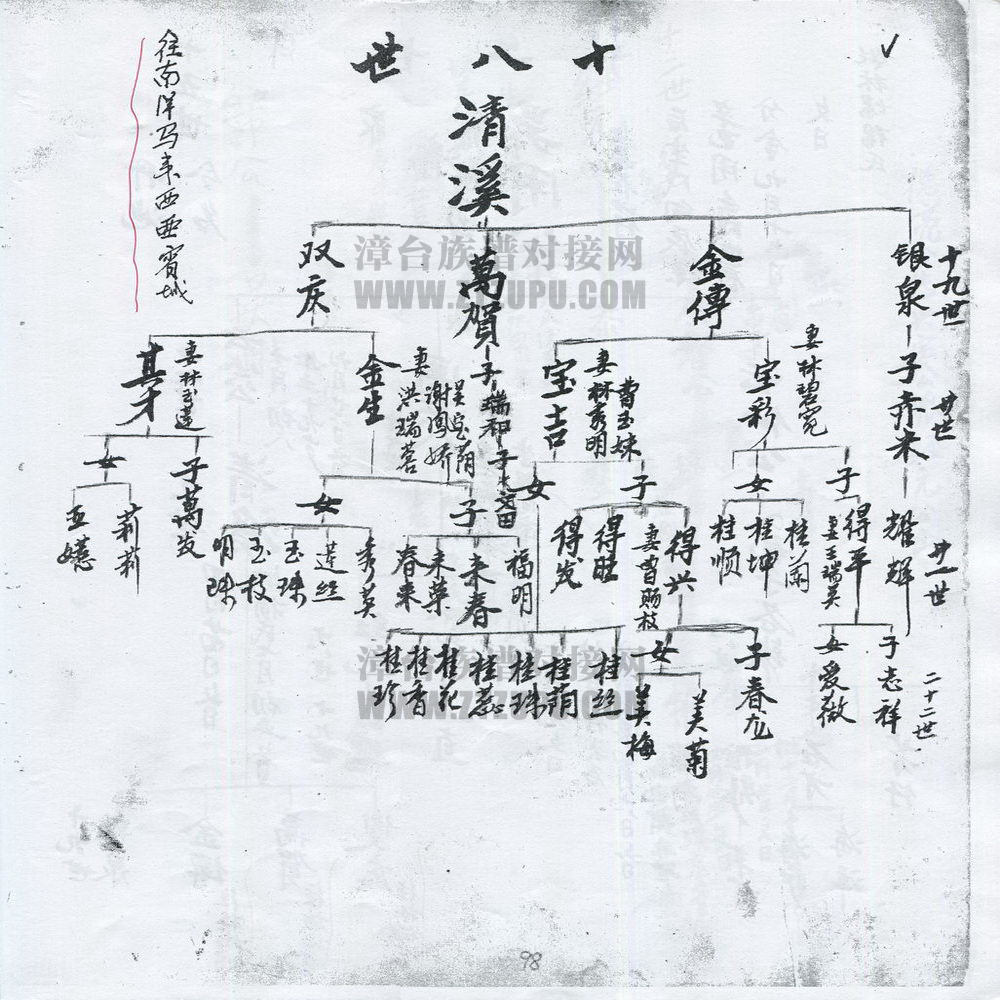 十八世
清溪
往南洋马来西亜霄城
十九世
银泉
金傳
萬賀
双庆
廿世
子赤米
宝彩
妻林碧宛
宝吉
妻林秀明
曹玉妹
子瑞和
金生
妻洪瑞蓉
谢鳳娇
吴宝蔭
其才
妻林玉莲
廿一世
耀輝
子
得平
妻王瑞英
女
桂蘭
桂坤
桂顺
子
得兴
妻曹赐枝
得旺
得发
女
子文田
子
福明
来春
来荣
春来
女
秀英
莲丝
玉珠
玉枝
明珠
子萬发
女
莉莉
亚嬨
二十二世
子志祥
女爱薇
子春龙
女
美菊
美梅
桂丝
桂蔭
桂珠
桂蕊
桂花
桂香
桂珍
98
漳台族谱对接网
WWW.ZTZUPU.COM
漳台族谱对接网
WWW.ZTZUPU.COM